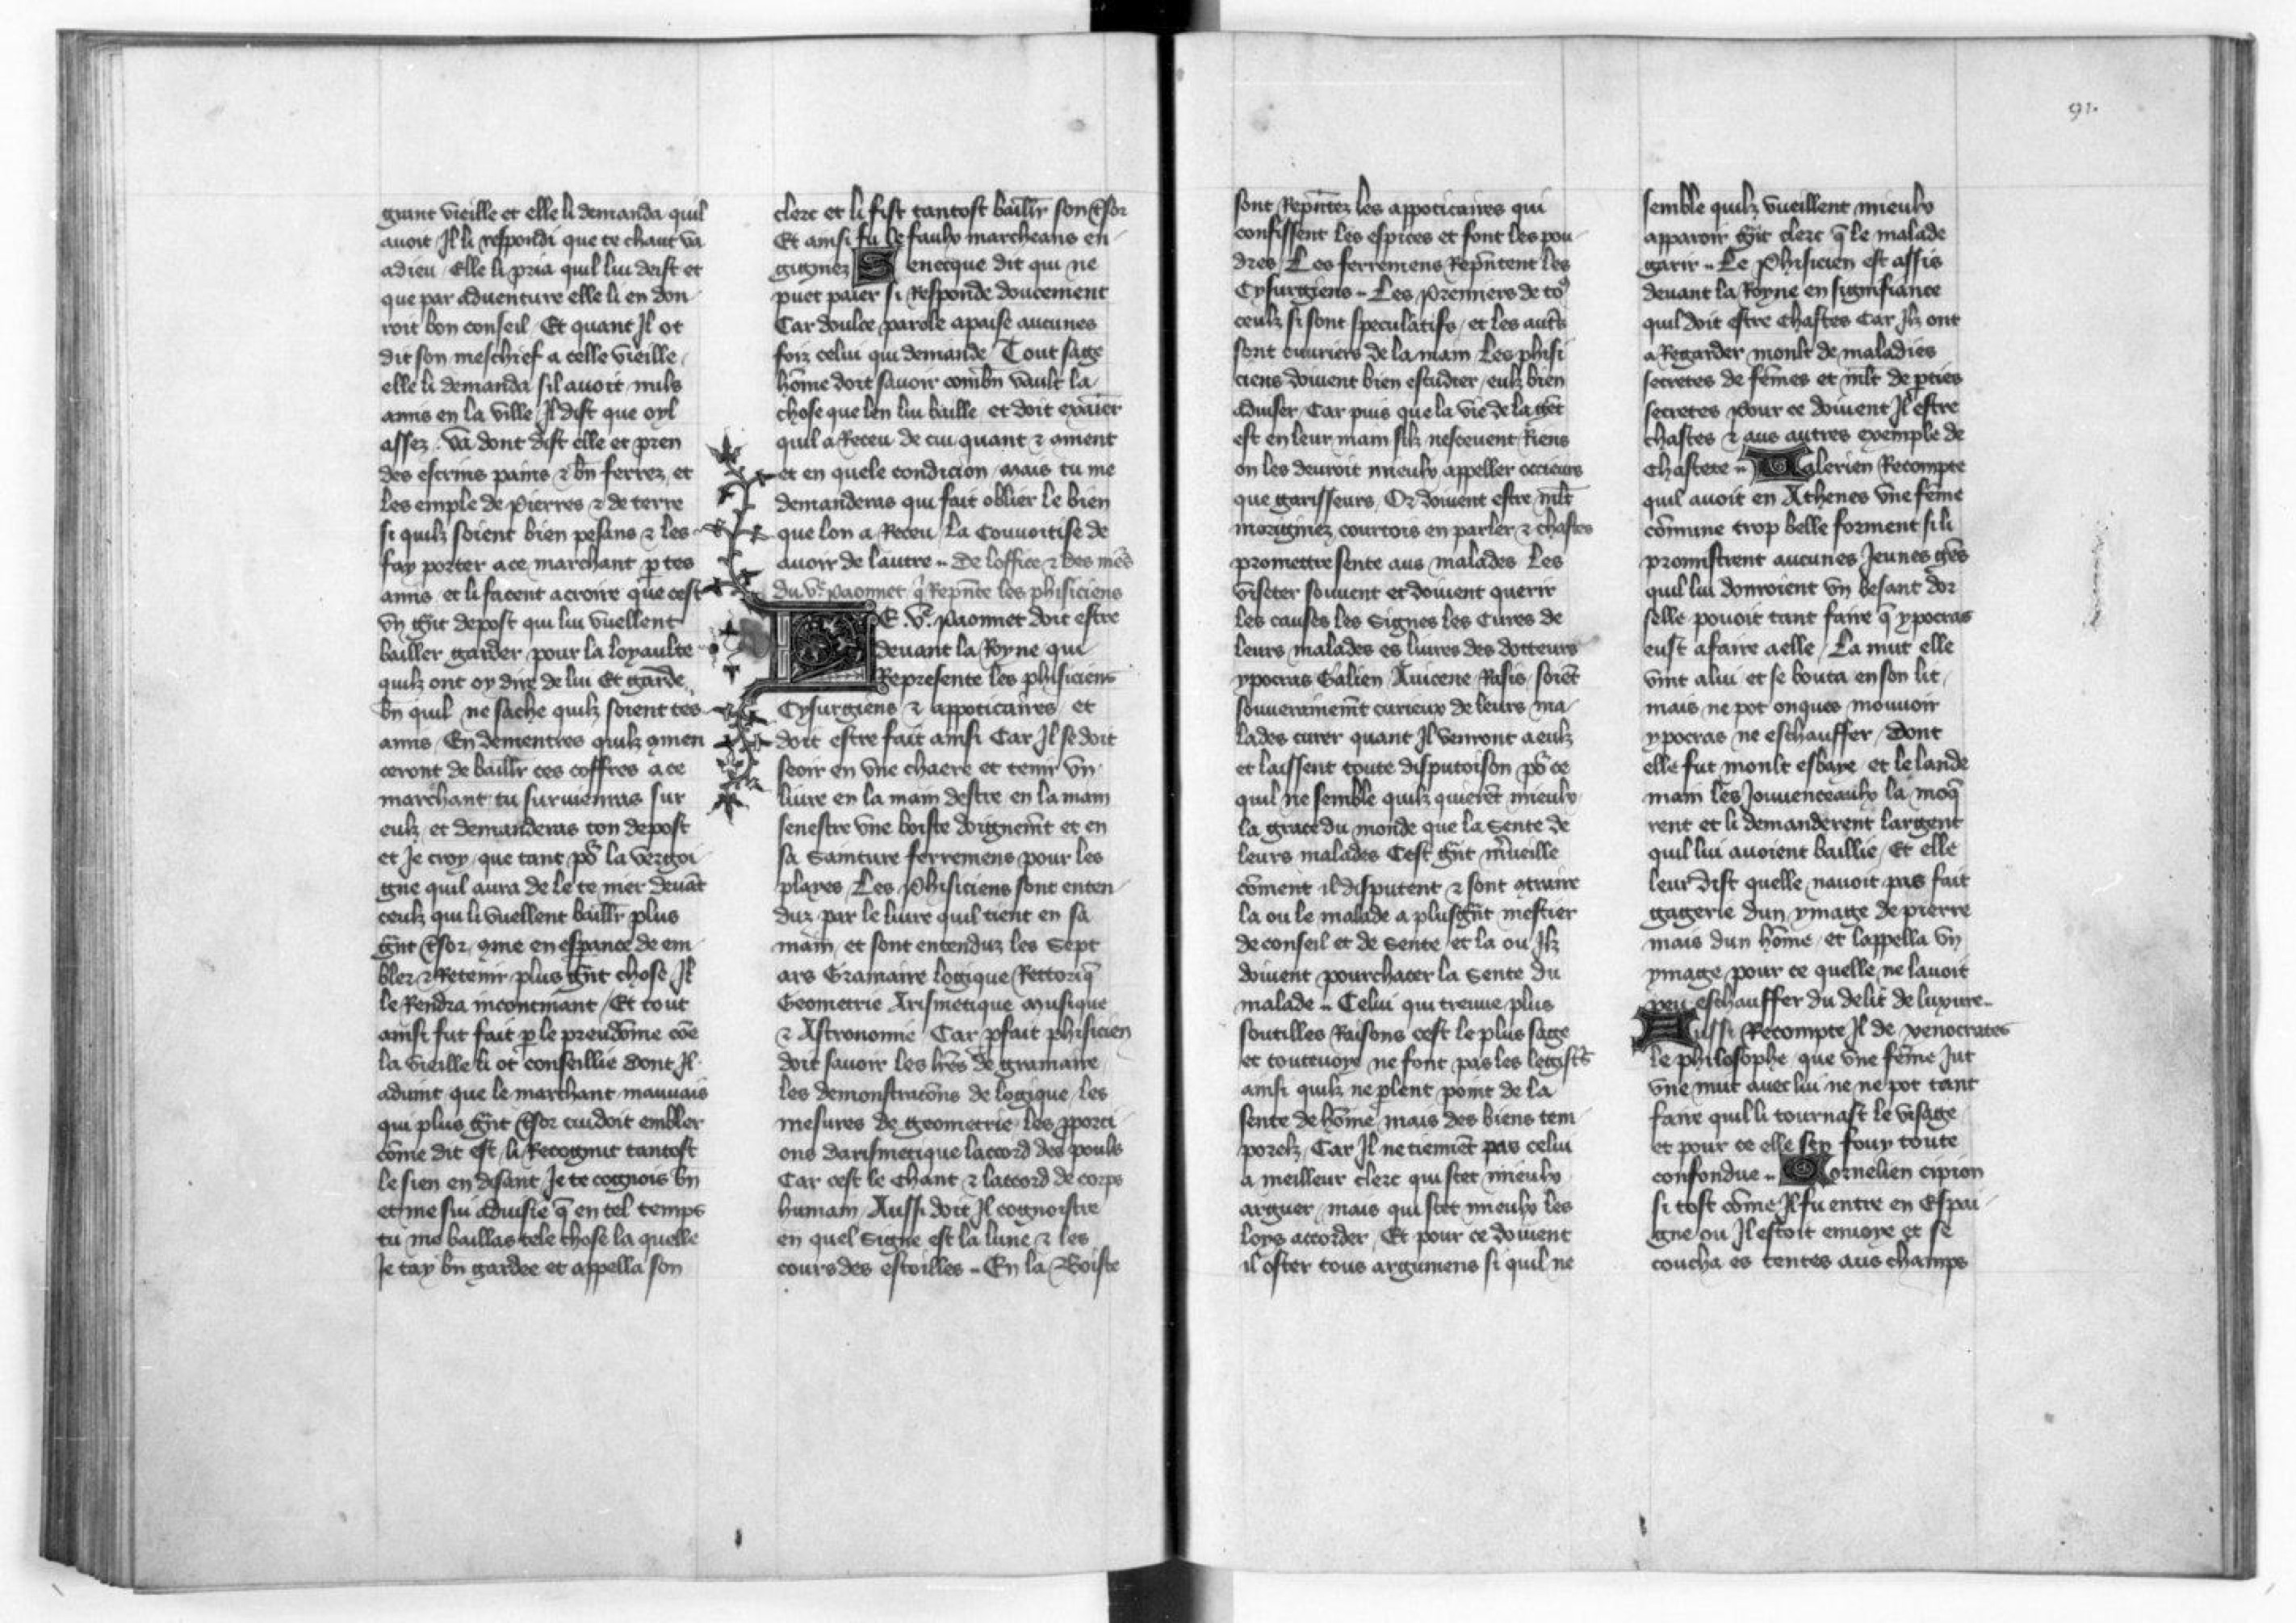 91.
grant vieille et elle li demanda quil
auoit Il li respondi que te chaut va
adieu / Elle li pria quil lui deist et
que par aduenture elle li en don-
roit bon conseil / Et quant Il ot
dit son meschief a celle vieille /
elle li demanda sil auoit nuls
amis en la ville / Il dist que oyl
assez . va dont dist elle et pren
des escrins pains ⁊ bn̄ ferrez et
les emple de pierres ⁊ de terre
si quilz soient bien pesans ⁊ les
fay porter a ce marchant ꝑ tes
amis et li facent acroire que cest
vn gn̄t depost qui lui vuellent
bailler garder pour la loyaulte
quilz ont oy dire de lui Et garde
bn̄ quil ne sache quilz soient tes
amis / En dementres quilz ꝯmen
ceront de baillr̄ ces coffres a ce
marchant tu suruienras sur
eulz et demanderas ton depost
et Je croy que tant po᷑ la vergoi
gne quil aura de le te nier deuāt
ceulz qui li vuellent baillr̄ plus
gn̄t tr̄sor ꝯme en esꝑance de em-
bler ⁊ Retenir plus gn̄t chose Il
le Rendra incontinant / Et tout
ainsi fut fait ꝑ le preudōme cōe
la vieille li ot conseillie dont Il
aduint que le marchant mauuais
qui plus gn̄t tr̄sor cuidoit embler
cōme dit est / li Recognut tantost
le sien en disant Je te cognois bn̄
et me sui aduisie q̄ en tel temps
tu me baillas tele chose la quelle
Je tay bn̄ gardee et appella son
clerc et li fist tantost baillr̄ son tr̄sor
Et ainsi fu le faulx marcheans en-
gignez Senecque dit qui ne
puet paier si Responde doucement
Car doulce parole apaise aucunes
foiz celui qui demande / Tout sage
hōme doit sauoir combn̄ vault la
chose que len lui baille et doit exāier
quil a Receu de cui quant ⁊ ꝯment
et en quele condicion / mais tu me
demanderas qui fait oblier le bien
que lon a Receu / La Couuoitise de
auoir de lautre .. De loffice ⁊ des mēs
du .v.e paonnet q̄ Repn̄te les phisiciens
LE .v.e paonnet doit estre
deuant la Royne qui
Represente les phisiciens
Cysurgiens ⁊ appoticaires et
doit estre fait ainsi Car Il se doit
seoir en vne chaere et tenir vn
liure en la main destre en la main
senestre vne boiste doignemt̄ et en
sa sainture ferremens pour les
playes / Les Phisiciens sont enten-
duz par le liure quil tient en sa
main et sont entenduz les Sept
ars Gramaire logique Rettoriq̄
Geometrie Arismetique musique
⁊ Astronomie / Car ꝑfait phisicien
doit sauoir les lr̄es de gramaire
les demonstracōns de logique / les
mesures de geometrie les ꝓporci
ons darismetique laccord des pouls
Car cest le chant ⁊ laccord de corps
humain / Aussi doit Il cognoistre
en quel signe est la lune ⁊ les
cours des estoilles .. En la Boiste
sont Repn̄tez les appoticaires qui
confissent les espices et font les pou-
dres / Les ferremens Repn̄tent les
Cysurgiens .. Les premiers de to᷒
ceulz si sont speculatifs / et les autr̄s
sont ouuriers de la main Les phisi
ciens doiuent bien estudier / eulz bien
aduiser / Car puis que la vie de la gēt
est en leur main silz nesceuent Riens
on les deuroit mieulx appeller occieurs
que garisseurs / Or doiuent estre ml̄t
moriginez courtois en parler ⁊ chastes
promettre sente aus malades Les
visiter souuent et doiuent querir
les causes les Signes les Cures de
leurs malades es liures des docteurs
ypocras Galien Auicene Rasis / soiēt
souuerainemt̄ curieux de leurs ma-
lades curer quant Il venront a eulz
et laissent toute disputoison po᷑ ce
quil ne semble quilz quierēt mieulx
la grace du monde que la sente de
leurs malades Cest gn̄t mr̄ueille
cōment il disputent ⁊ sont ꝯtraire
la ou le malade a plus gn̄t mestier
de conseil et de sente et la ou Ilz
doiuent pourchacer la sente du
malade .. Celui qui treuue plus
soutilles Raisons cest le plus sage
et toutevoye ne font pas les legistr̄s
ainsi quilz ne ꝑlent point de la
sente de hōme mais des biens tem-
porelz / Car Il ne tiennēt pas celui
a meilleur clerc qui scet mieulx
arguer / mais qui scet mieulx les
loys accorder / Et pour ce doiuent
il oster tous argumens si quil ne
semble quilz vueillent mieulx
apparoir gn̄t clerc q̄ le malade
garir .. Le Phisicien est assis
deuant la Royne en signifiance
quil doit estre chastes Car Ilz ont
a Regarder moult de maladies
secretes de fēmes et ml̄t de ꝑties
secretes Pour ce doiuent Il estre
chastes ⁊ aus autres exemple de
chastete .. Valerien Recompte
quil auoit en Athenes vne fēme
cōmune trop belle forment si li
promistrent aucunes Jeunes gēs
quil lui donroient vn besant dor
selle pouoit tant faire q̄ ypocras
eust afaire a elle / La nuit elle
vint a lui et se bouta en son lit /
mais ne pot onques mouuoir
ypocras ne eschauffer / Dont
elle fut moult esbaye et le lande
main les Jouuenceaulx la moq̄
rent et li demanderent largent
quil lui auoient baillie / Et elle
leur dist quelle nauoit pas fait
gagerie dun ymage de pierre
mais dun hōme / et lappella vn
ymage pour ce quelle ne lauoit
peu eschauffer du delit de luxure ..
Aussi Recompte Il de xenocrates
le philosophe que vne fēme Jut
vne nuit auec lui ne ne pot tant
faire quil li tournast le visage
et pour ce elle sen fouy toute
confondue .. Cornelien cipion
si tost cōme Il fu entre en Espai-
gne ou Il estoit enuoye et se
coucha es tentes aus champs